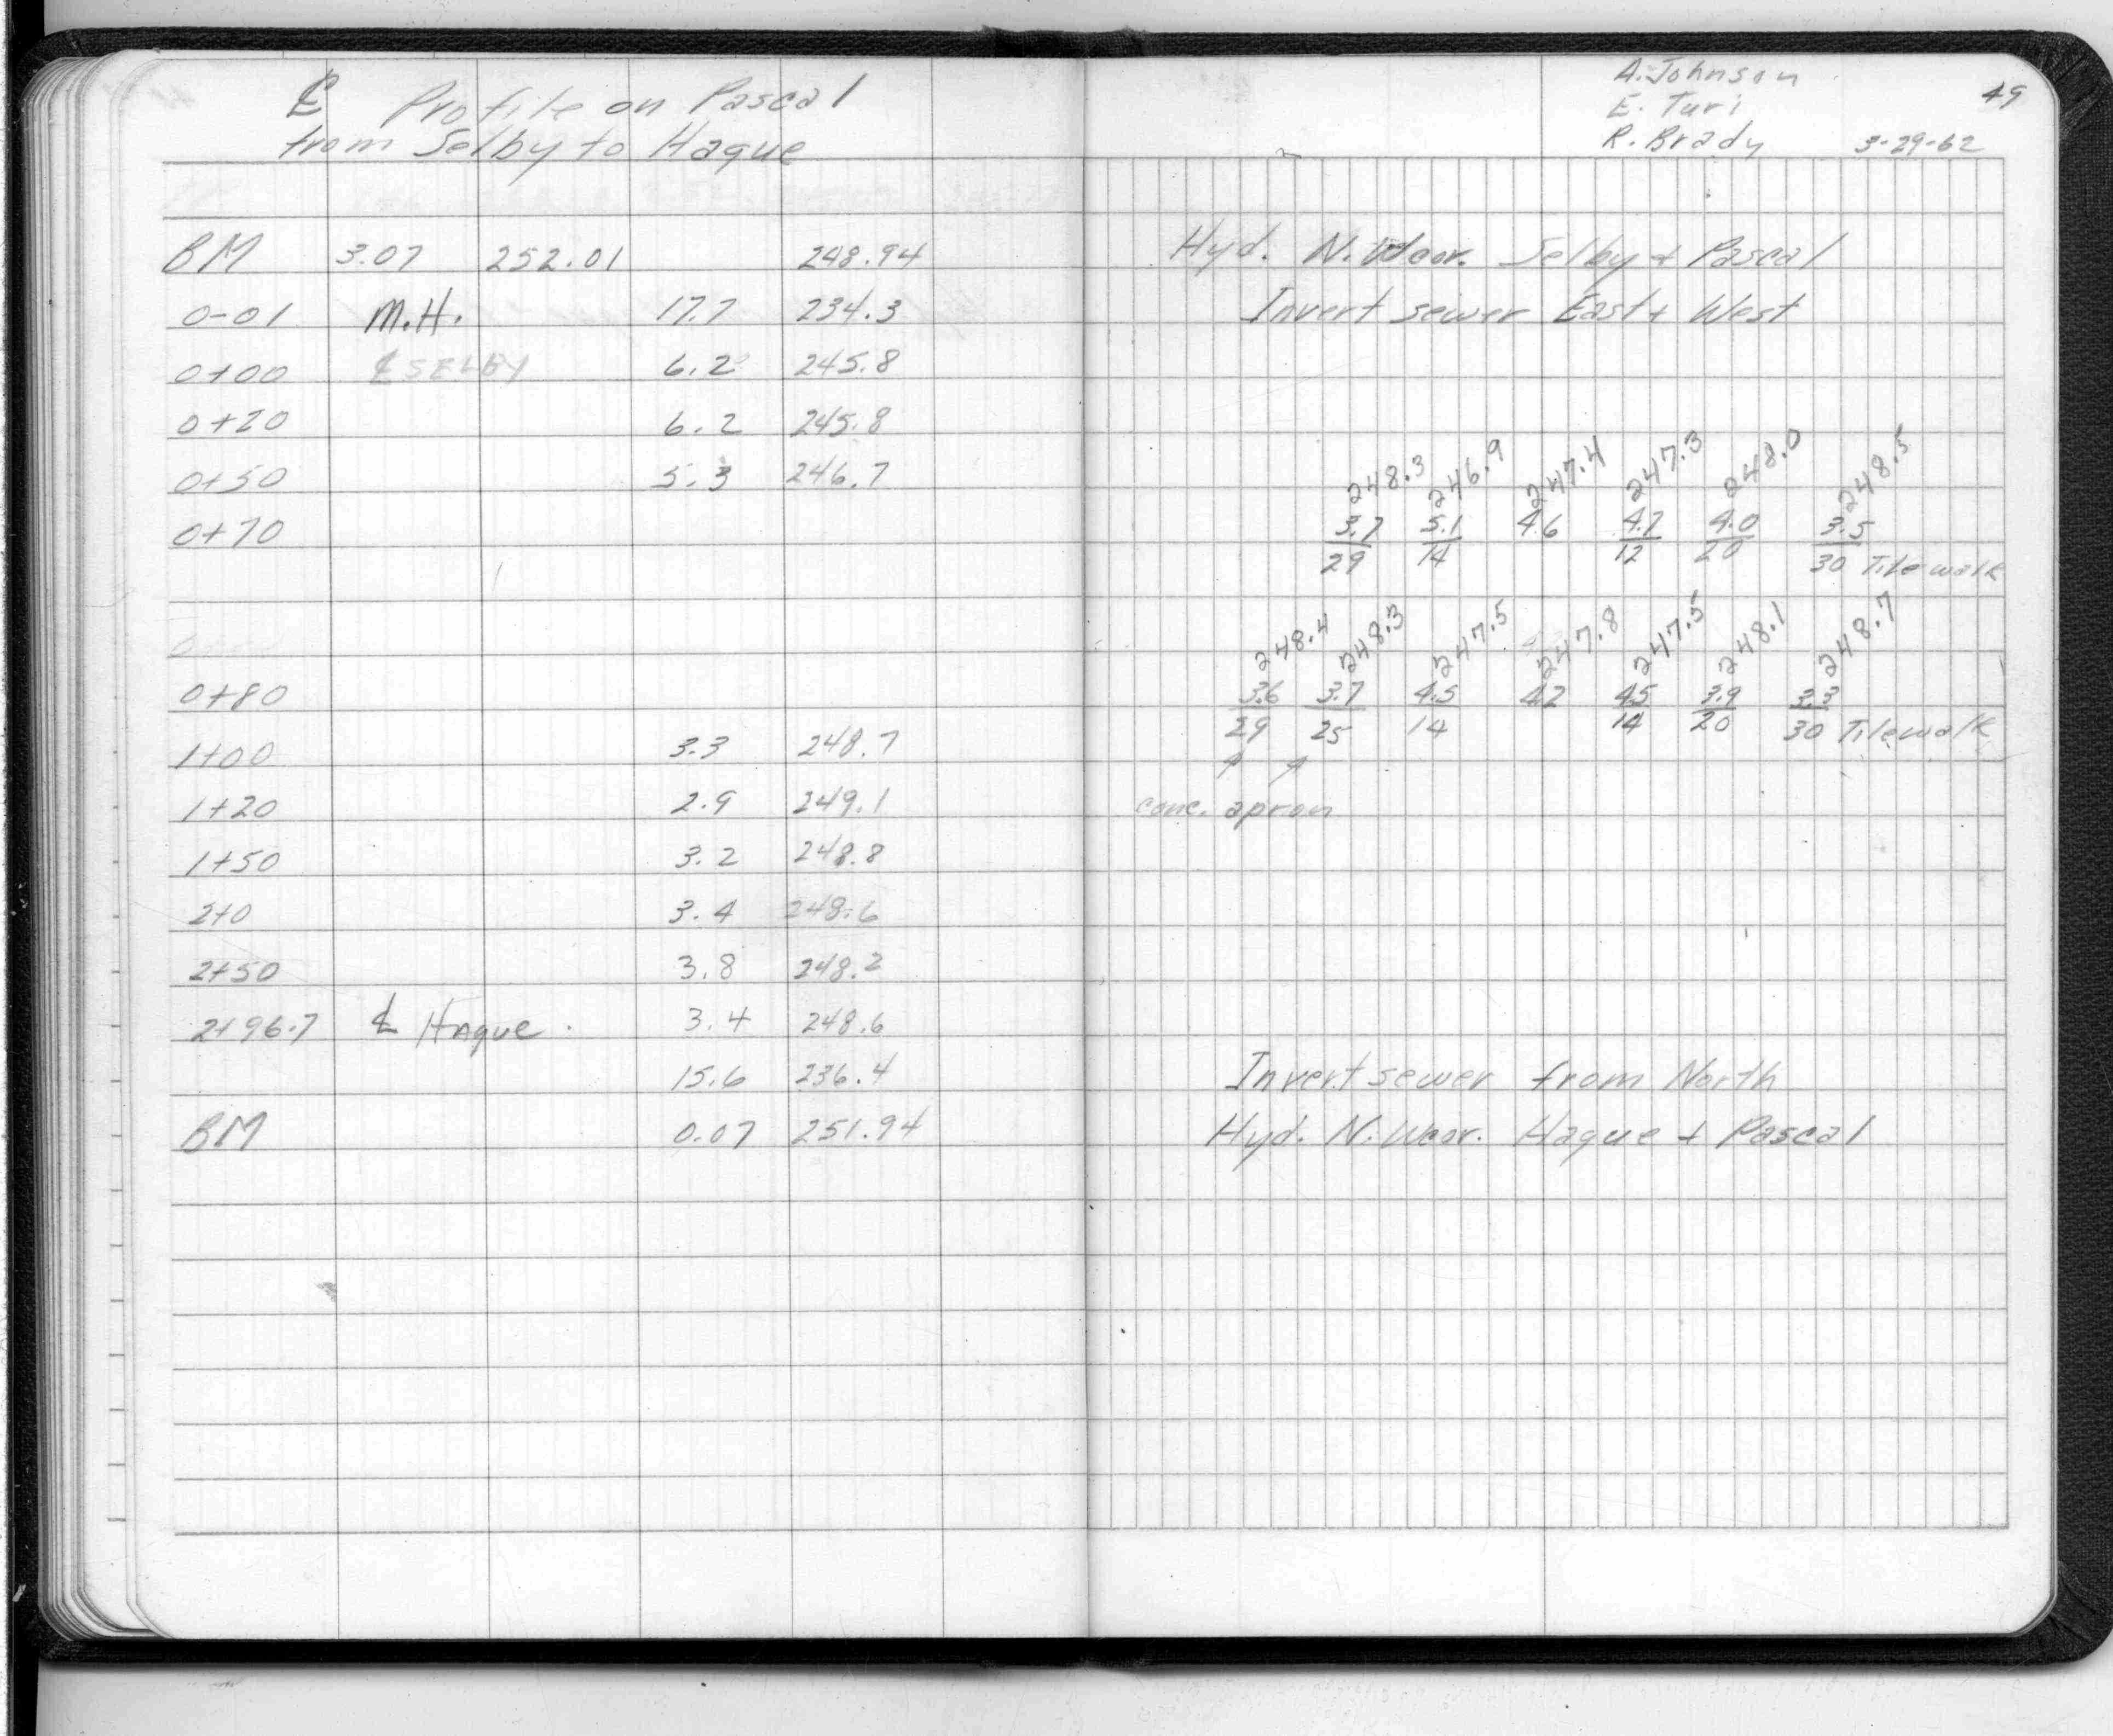 ℄ Profile on Pascal
from Selby to Hague
BM 3.07 252.01 248.94
0-01 M.H. 17.7 234.3
0+00 ℄ SELBY 6.2 245.8
0+20 6.2 245.8
0+50 5.3 246.7
0+70
0+80
1+00 3.3 248.7
1+20 2.9 249.1
1+50 3.2 248.8
2+0 3.4 248.6
2+50 3.8 248.2
2+96.7 ℄ Hague. 3.4 248.6
15.6 236.4
BM 0.07 251.94
A. Johnson
E. Turi
R. Brady 3-29-62
49
Hyd. N.Wcor. Selby + Pascal
Invert sewer East + West
248.3 246.9 247.4 247.3 248.0 248.5
3.7 5.1 4.6 4.7 4.0 3.5
29 14 12 20 30 Tilewalk
248.4 248.3 247.5 247.8 247.5 248.1 248.7
3.6 3.7 4.5 4.2 4.5 3.9 3.3
29 25 14 14 20 30 Tilewalk
conc. apron
Invert sewer from North
Hyd. N.Wcor. Hague + Pascal